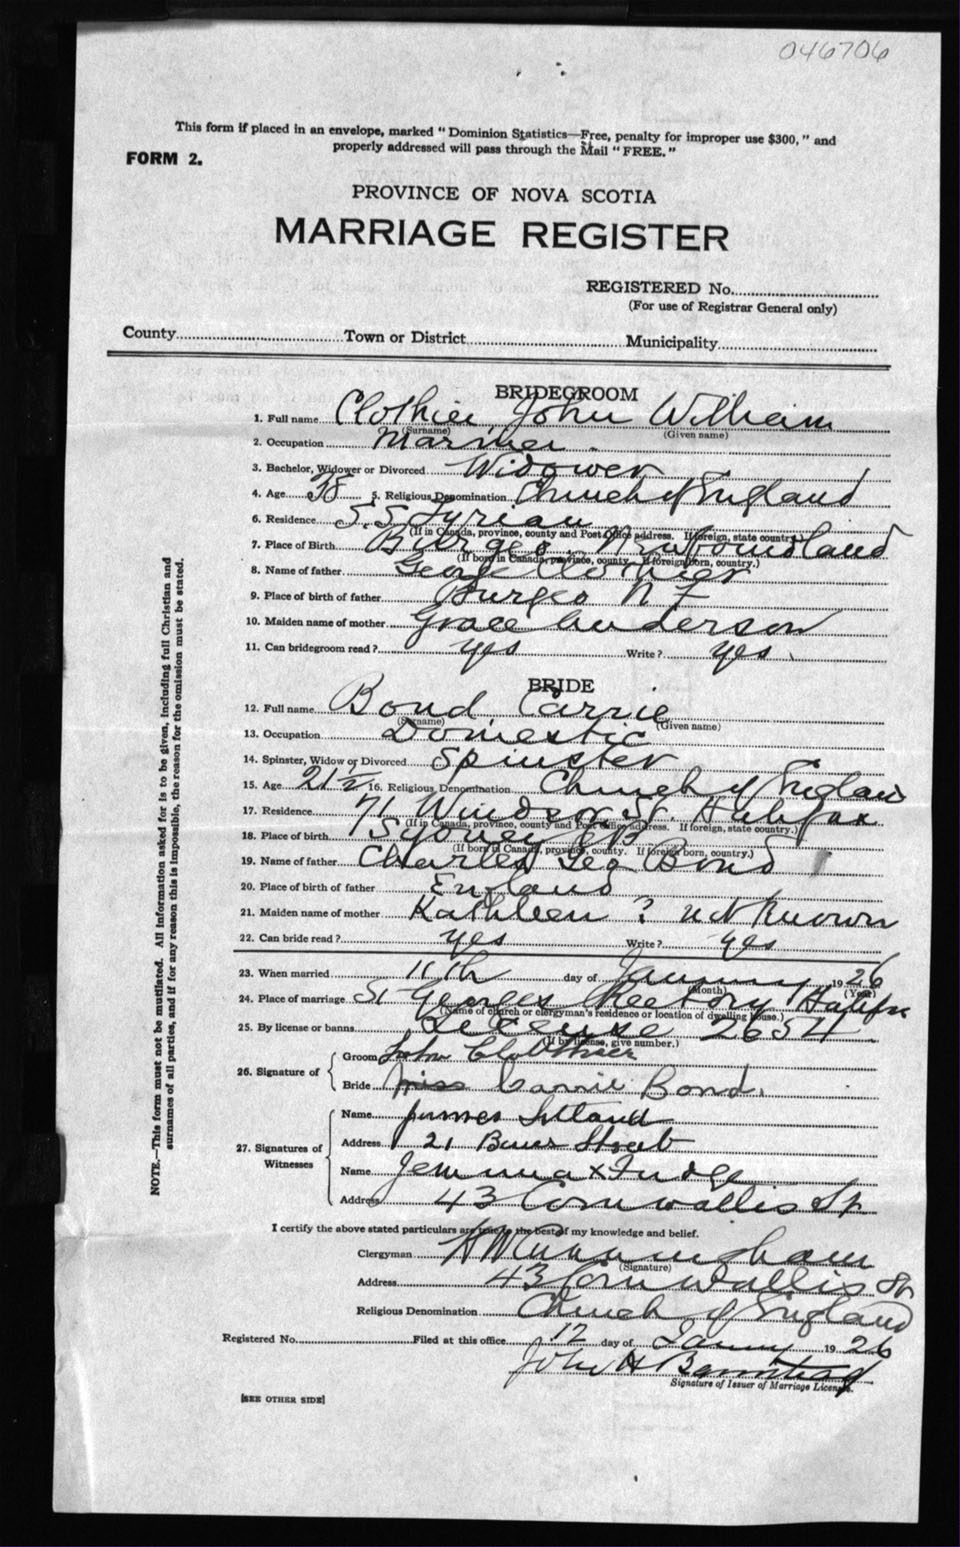 046706
This form if placed in an envelope, marked "Dominion Statistics—Free, penalty for improper use $300," and
properly addressed will pass through the Mail "FREE."
FORM 2.
PROVINCE OF NOVA SCOTIA
MARRIAGE REGISTER
REGISTERED No.
(For use of Registrar General only)
County Town or District Municipality
BRIDEGROOM
1. Full name Clothier, John William
(Surname) (Given name)
2. Occupation Mariner.
3. Bachelor, Widower or Divorced Widower
4. Age 38 5. Religious Denomination Church of England
6. Residence S.S. Tyrian
(If in Canada, province, county and Post Office address. If foreign, state country)
7. Place of Birth Burgeo, Newfoundland
(If born in Canada, province, county. If foreign born, country.)
8. Name of father George Clothier
9. Place of birth of father Burgeo N F
10. Maiden name of mother Grace Anderson
11. Can bridegroom read? yes Write? yes.
BRIDE
12. Full name Bond, Carrie
(Surname) (Given name)
13. Occupation Domestic
14. Spinster, Widow or Divorced Spinster
15. Age 21 1/2 16. Religious Denomination Church of England
17. Residence 71 Windsor St. Halifax
(If in Canada, province, county and Post Office address. If foreign, state country.)
18. Place of birth Sydney CB
(If born in Canada, province, county. If foreign born, country.)
19. Name of father Charles Geo Bond
20. Place of birth of father England
21. Maiden name of mother Kathleen ? not known
22. Can bride read? yes Write? yes
23. When married 11th day of January 1926
(Month) (Year)
24. Place of marriage St Georges Rectory Halifax
(Name of church or clergyman's residence or location of dwelling house.)
25. By license or banns License 2654
(If by license, give number.)
26. Signature of
Groom John Clothier
Bride Miss Carrie Bond.
27. Signatures of Witnesses
Name James
Address 21 Street
Name Jemima x Fudge
Address 43 Cornwallis St
I certify the above stated particulars are true to the best of my knowledge and belief.
Clergyman Cunningham
(Signature)
Address 43 Cornwallis St
Religious Denomination Church of England
Registered No. Filed at this office 12 day of Janny 1926
John H Barnstead
Signature of Issuer of Marriage License.
[SEE OTHER SIDE]
NOTE.—This form must not be mutilated. All information asked for is to be given, including full Christian and
surnames of all parties, and if for any reason this is impossible, the reason for the omission must be stated.